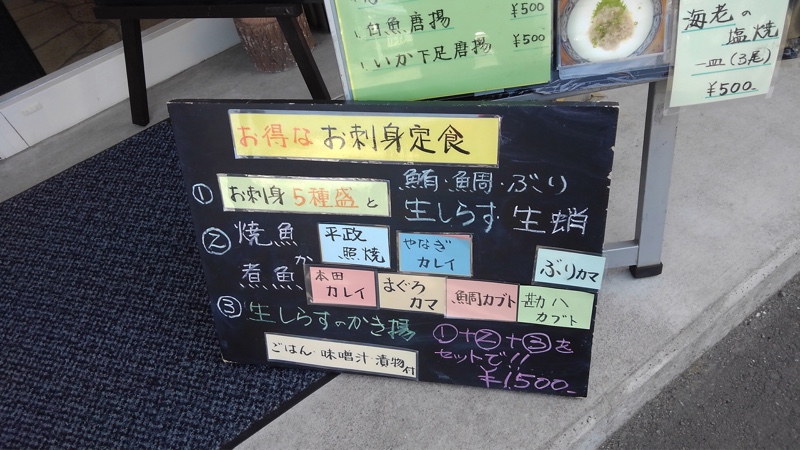 白魚唐揚 ¥500
いか下足唐揚 ¥500
海老の
塩焼
一皿(3尾)
¥500.
お得な お刺身定食
① お刺身 5種盛 と
鮪・鯛・ぶり
生しらす・生蛸
② 焼魚
か
煮魚
平政
照焼
やなぎ
カレイ
ぶりカマ
本田
カレイ
まぐろ
カマ
鯛カブト
勘八
カブト
③ 生しらすのかき揚
ごはん・味噌汁・漬物付
①+②+③を
セットで!!
¥1500-